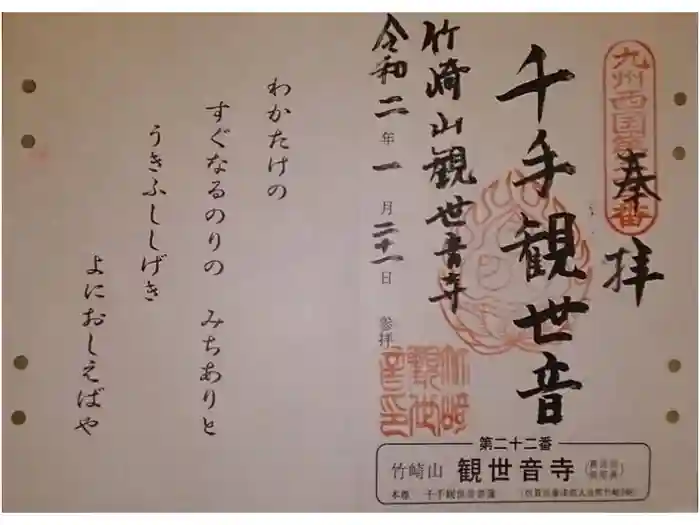 奉拝
千手観世音
竹崎山観世音寺
令和二年一月二十一日 参拝
わかたけの
すぐなるのりの みちありと
うきふししげき
よにおしえばや
第二十二番
竹崎山 観世音寺
本尊 千手観世音菩薩